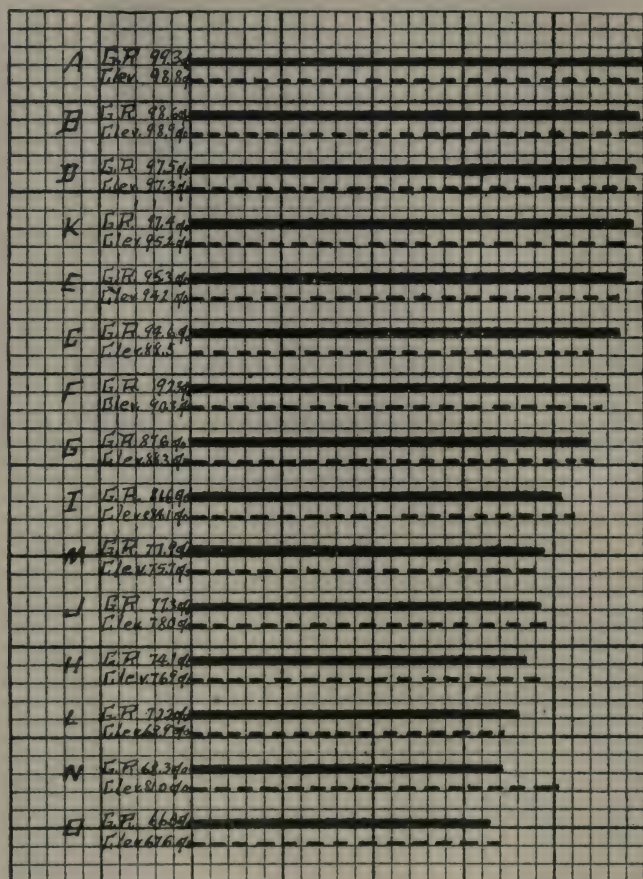 A G.R. 99.3%
Clev. 98.8%
B G.R. 98.6%
Clev. 98.9%
D G.R. 97.5%
Clev. 97.3%
K G.R. 97.4%
Clev. 95.2%
E G.R. 95.3%
Clev. 94.2%
C G.R. 94.6%
Clev. 88.5
F G.R. 92.3%
Clev. 90.3%
G G.R. 87.6%
Clev. 88.3%
I G.R. 81.6%
Clev. 84.1%
M G.R. 77.9%
Clev. 75.7%
J G.R. 77.3%
Clev. 78.0%
H G.R. 74.1%
Clev. 76.9%
L G.R. 72.2%
Clev. 68.9%
N G.R. 68.3%
Clev. 81.0%
O G.R. 66.0%
Clev. 67.6%